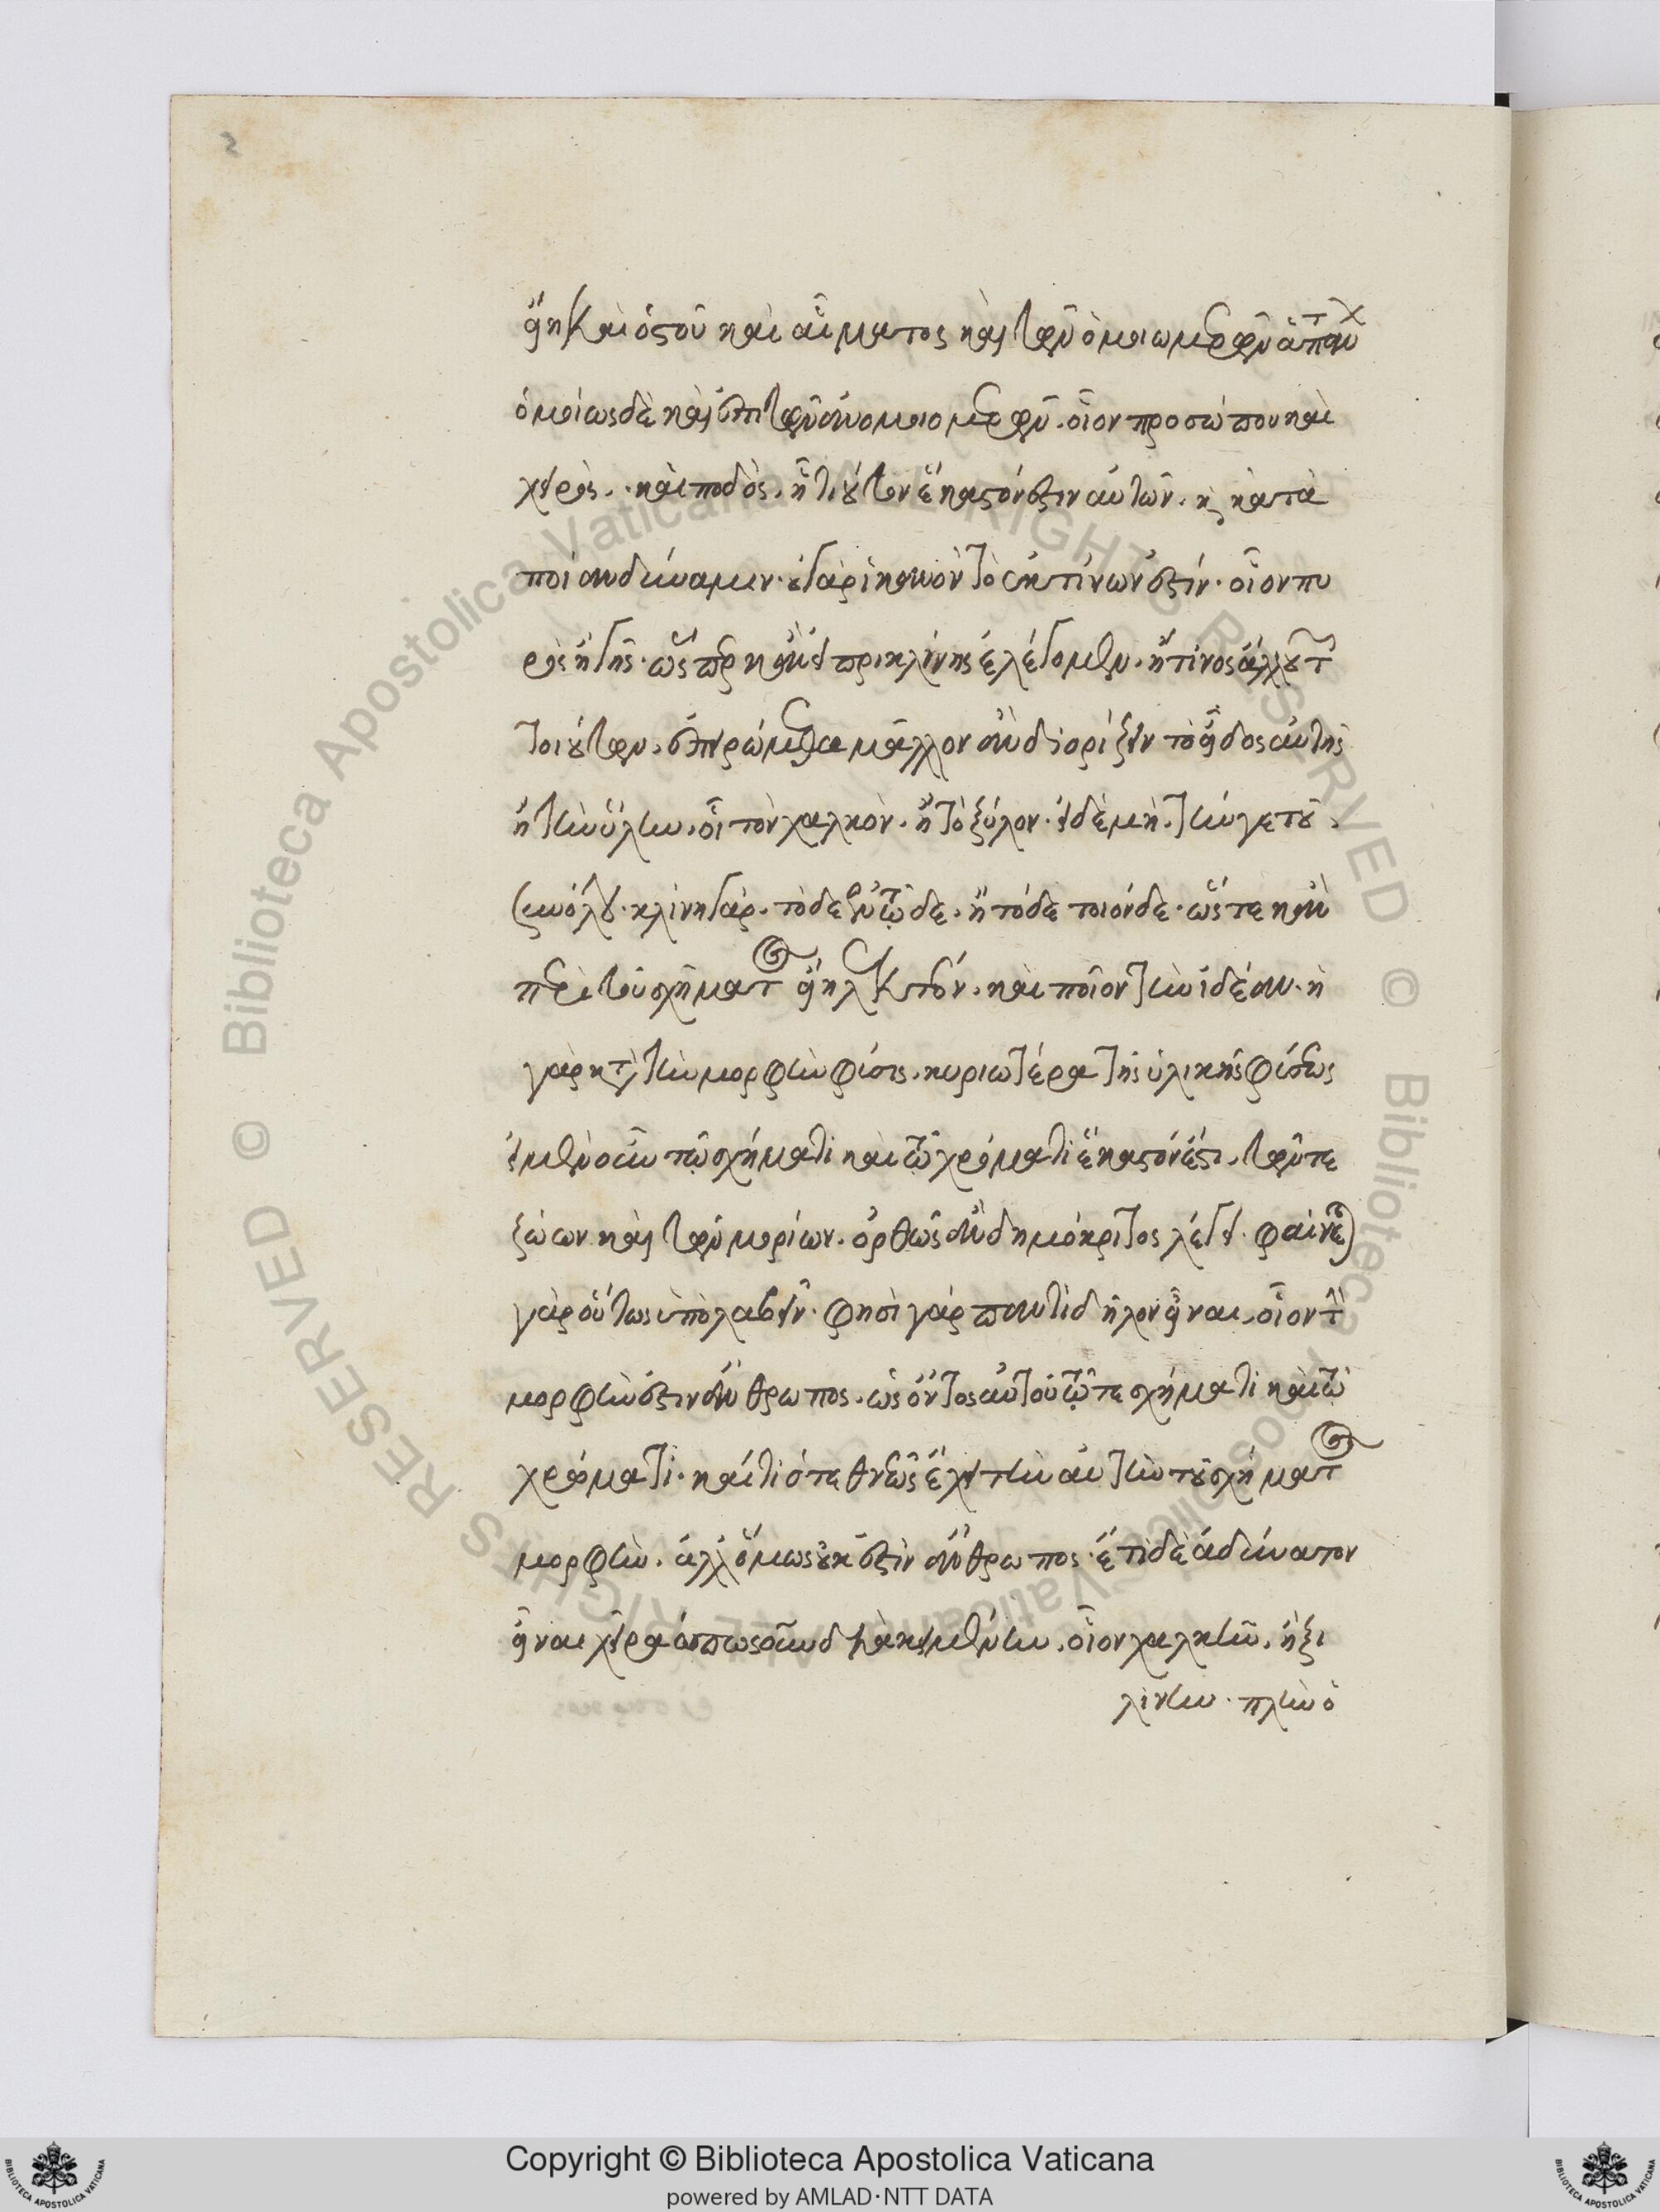 εἴη καὶ ὀστοῦ καὶ αἵματος καὶ τῶν ὁμοιωμερῶν ἁπάντων
ὁμοίως δὲ καὶ ἐπὶ τῶν ἀνομοιομερῶν. οἷον προσώπου καὶ
χειρὸς. καὶ ποδὸς. ἧ τιοῦτον ἕκαστόν ἐστιν αὐτῶν. καὶ κατὰ
ποίαν δύναμιν. οὐ γὰρ ἱκανὸν τὸ ἐκ τίνων ἐστίν. οἷον πυ
ρὸς ἢ γῆς. ὥσπερ κἂν εἰ περι κλίνης ἐλέγομεν. ἤ τινος ἄλλου τῶν
τοιούτων. ἐπειρώμεθα μᾶλλον ἂν διορίζειν τὸ εἶδος αὐτῆς
ἢ τὴν ὕλην. οἷον τὸν χαλκὸν. ἢ τὸ ξύλον. εἰ δὲ μὴ. τήν γε τοῦ
συνόλου. κλίνη γὰρ. τόδε ἐν τῷδε. ἢ τόδε τοιόνδε. ὥστε κἂν
περὶ τοῦ σχήματος εἴη λεκτέον. καὶ ποῖον τὴν ἰδέαν. ἡ
γὰρ κατὰ τὴν μορφὴν φύσις. κυριωτέρα τῆς ὑλικῆς φύσεως
εἰ μὲν οὖν τῷ σχήματι καὶ τῷ χρώματι ἕκαστόν ἐστι. τῶν τε
ζώων καὶ τῶν μορίων. ὀρθῶς ἂν δημόκριτος λέγει. φαίνεται
γὰρ οὕτως ὑπολαβεῖν. φησὶ γὰρ παντὶ δῆλον εἶναι. οἷον τὴν
μορφὴν ἐστιν ἄνθρωπος. ὡς ὄντος αὐτοῦ τῷ τε σχήματι καὶ τῷ
χρώματι. καίτι ὅ τε θνεὼς ἔχει τὴν αὐτὴν τοῦ σχήματος
μορφὴν. ἀλλ' ὅμως οὐκ ἐστὶν ἄνθρωπος. ἔτι δὲ ἀδύνατον
εἶναι χεῖρα ὁπωσοῦν διακειμένην. οἷον χαλκῆν. ἢ ξυ
λίνην. πλὴν ὁ